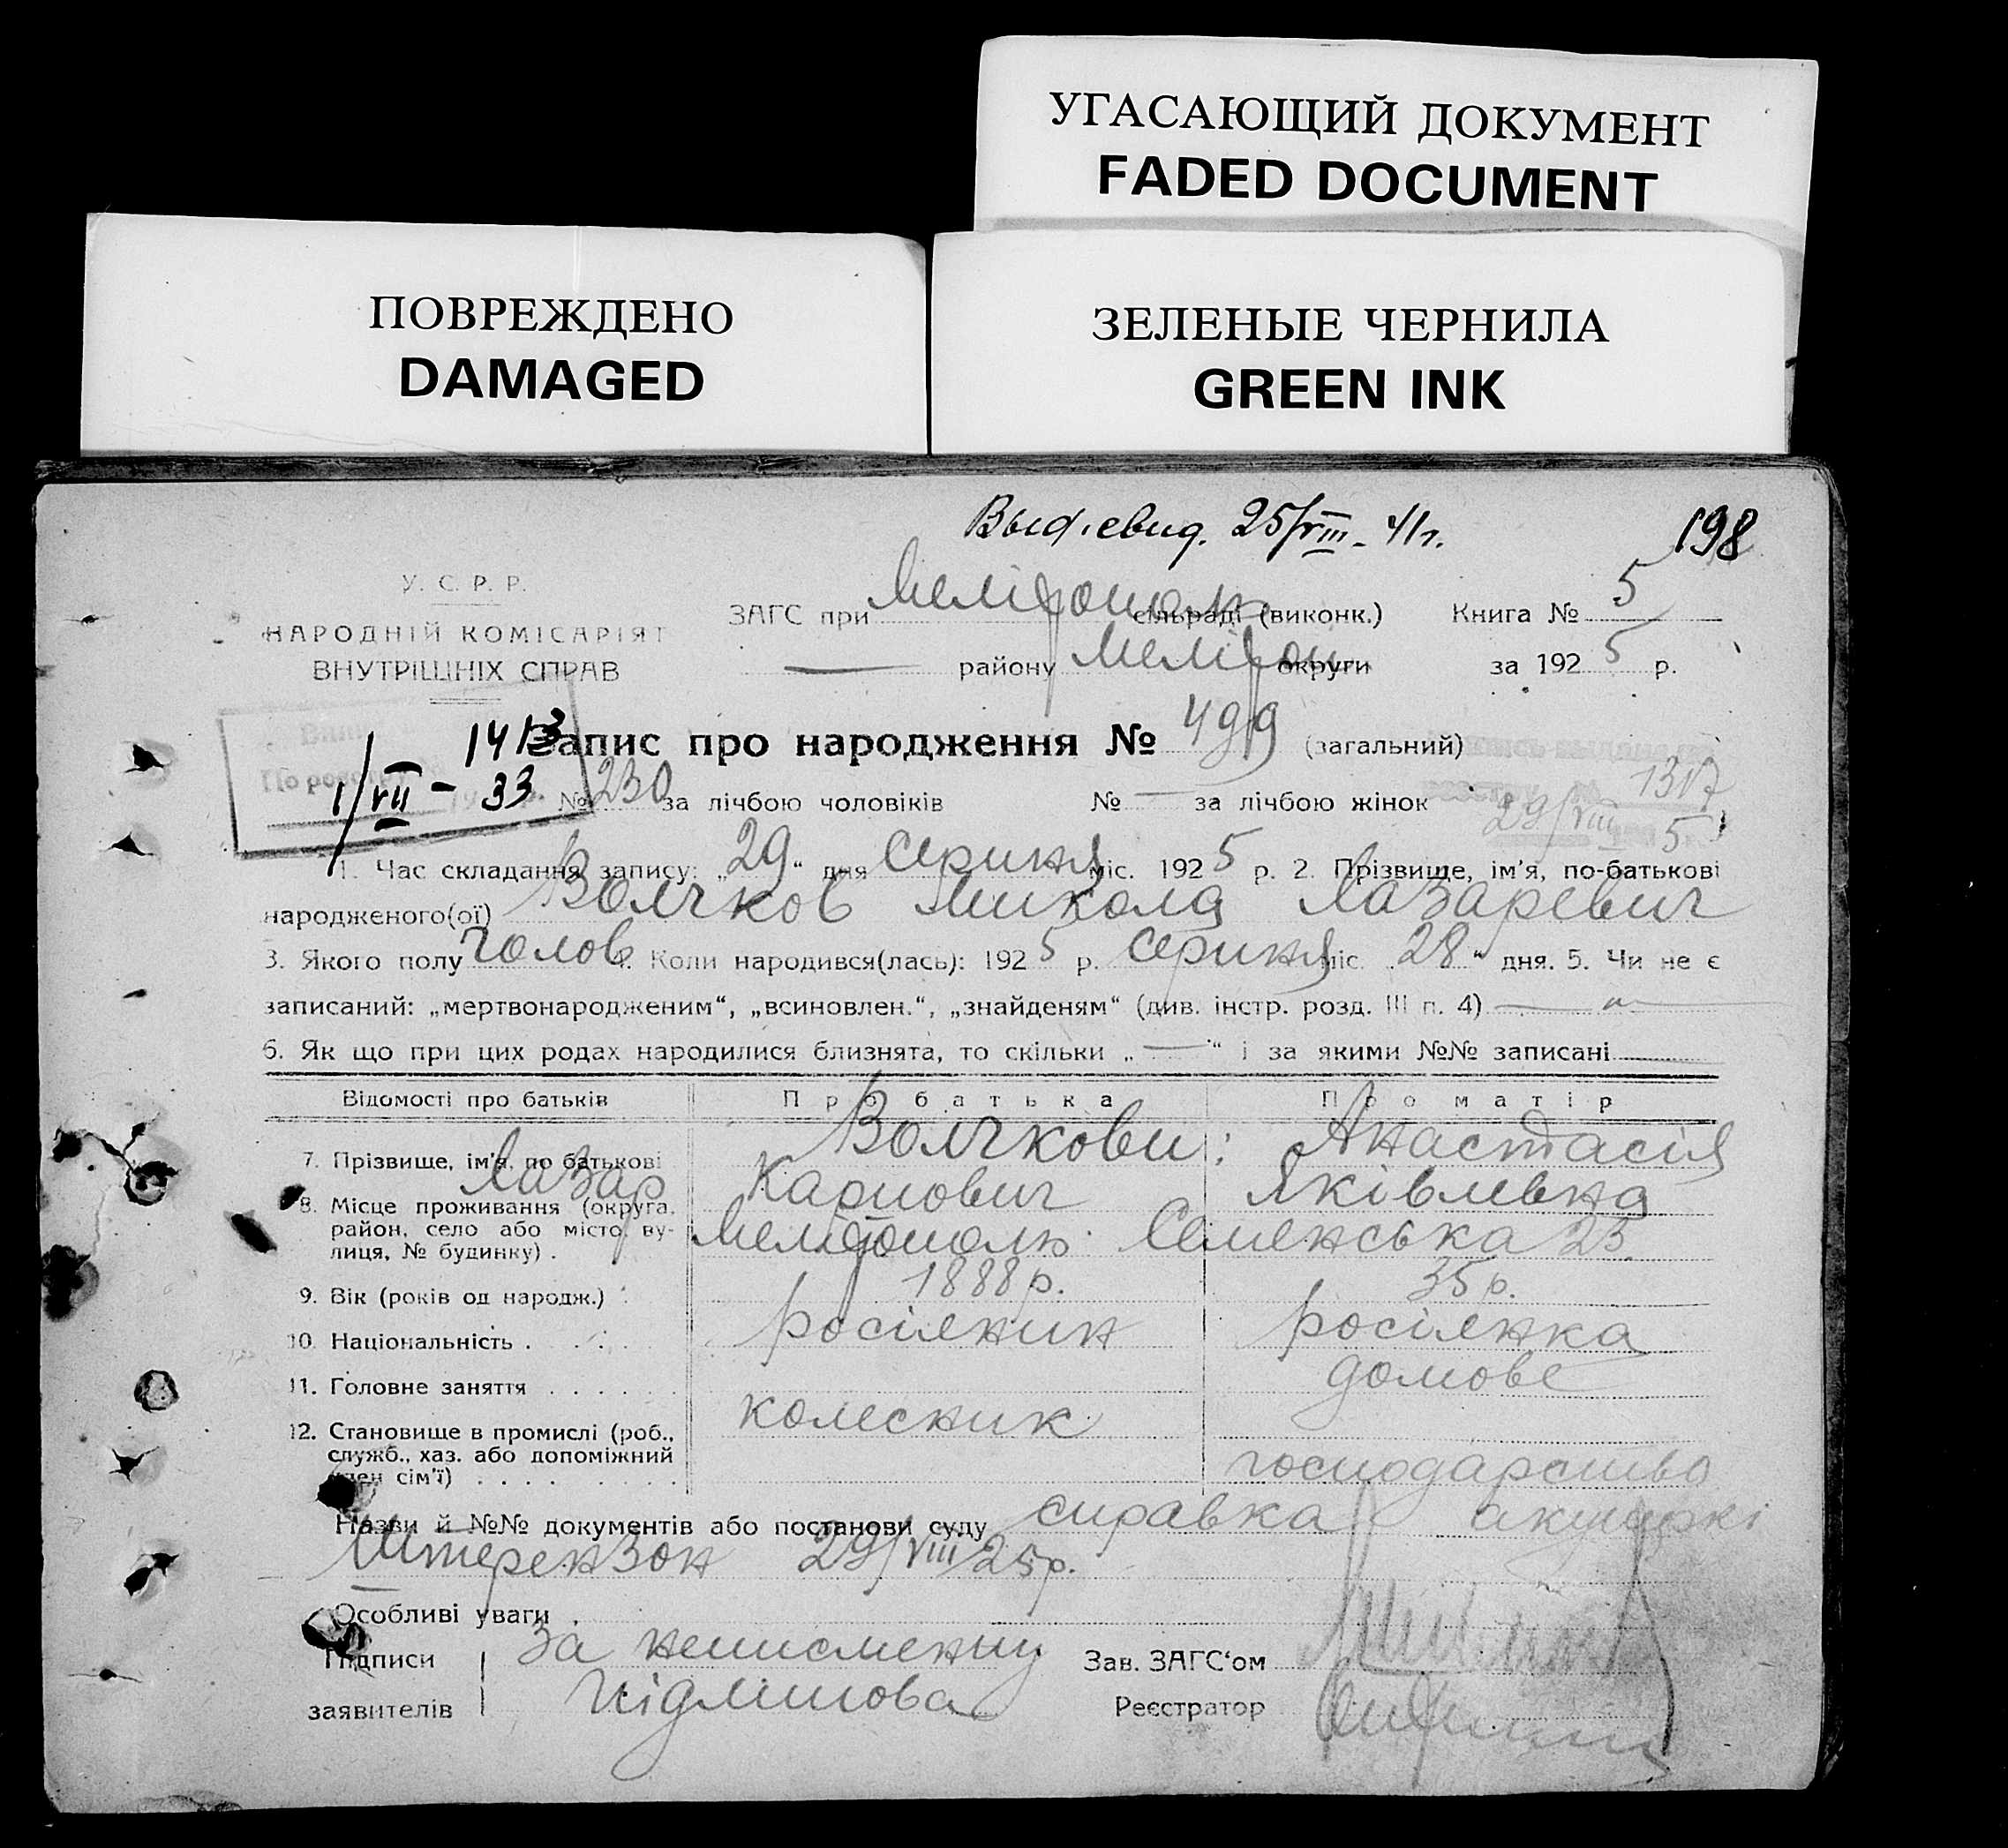 УГАСАЮЩИЙ ДОКУМЕНТ
FADED DOCUMENT
ПОВРЕЖДЕНО
DAMAGED
ЗЕЛЕНЫЕ ЧЕРНИЛА
GREEN INK
Выд. свид. 25/VIII - 41 г.
198
У. С. Р. Р.
НАРОДНІЙ КОМІСАРІЯТ
ВНУТРІШНІХ СПРАВ
ЗАГС при Мелітополь сільраді (виконк.) Книга № 5
— району Меліtоп. округи за 1925 р.
1413
1/VII - 33
Запис про народження № 499 (загальний)
№ 230 за лічбою чоловіків № — за лічбою жінок
1317
29/VIII 5
1. Час складання запису: „29“ дня Серпня міс. 1925 р. 2. Прізвище, ім'я, по-батькові
народженого(ої) Волчков Микола Лазаревич
3. Якого полу Чолов. 4. Коли народився(лась): 1925 р. Серпня міс. „28“ дня. 5. Чи не є
записаний: „мертвонародженим“, „всиновлен.“, „знайденям“ (див. інстр. розд. III п. 4) —
6. Як що при цих родах народилися близнята, то скільки „—“ і за якими №№ записані
Відомості про батьків Про батька Про матір
7. Прізвище, ім'я, по батькові Волчкови: Анастасія
Лазар Карпович Яківлевна
8. Місце проживання (округа, район, село або місто, ву-
лиця, № будинку) . Мелітополь Семенська 23.
9. Вік (років од народж.) 1888 р. 35 р.
10. Національність . росіянин росіянка
11. Головне заняття . . . . . . домове
12. Становище в промислі (роб., колесник
служб., хаз. або допоміжний
член сім'ї) . . . . . господарство
Назви й №№ документів або постанови суду справка акушеркі
Штерензон 29/VIII 25 р.
Особливі уваги .
Підписи За неписменну Зав. ЗАГС‘ом
заявителів Реєстратор